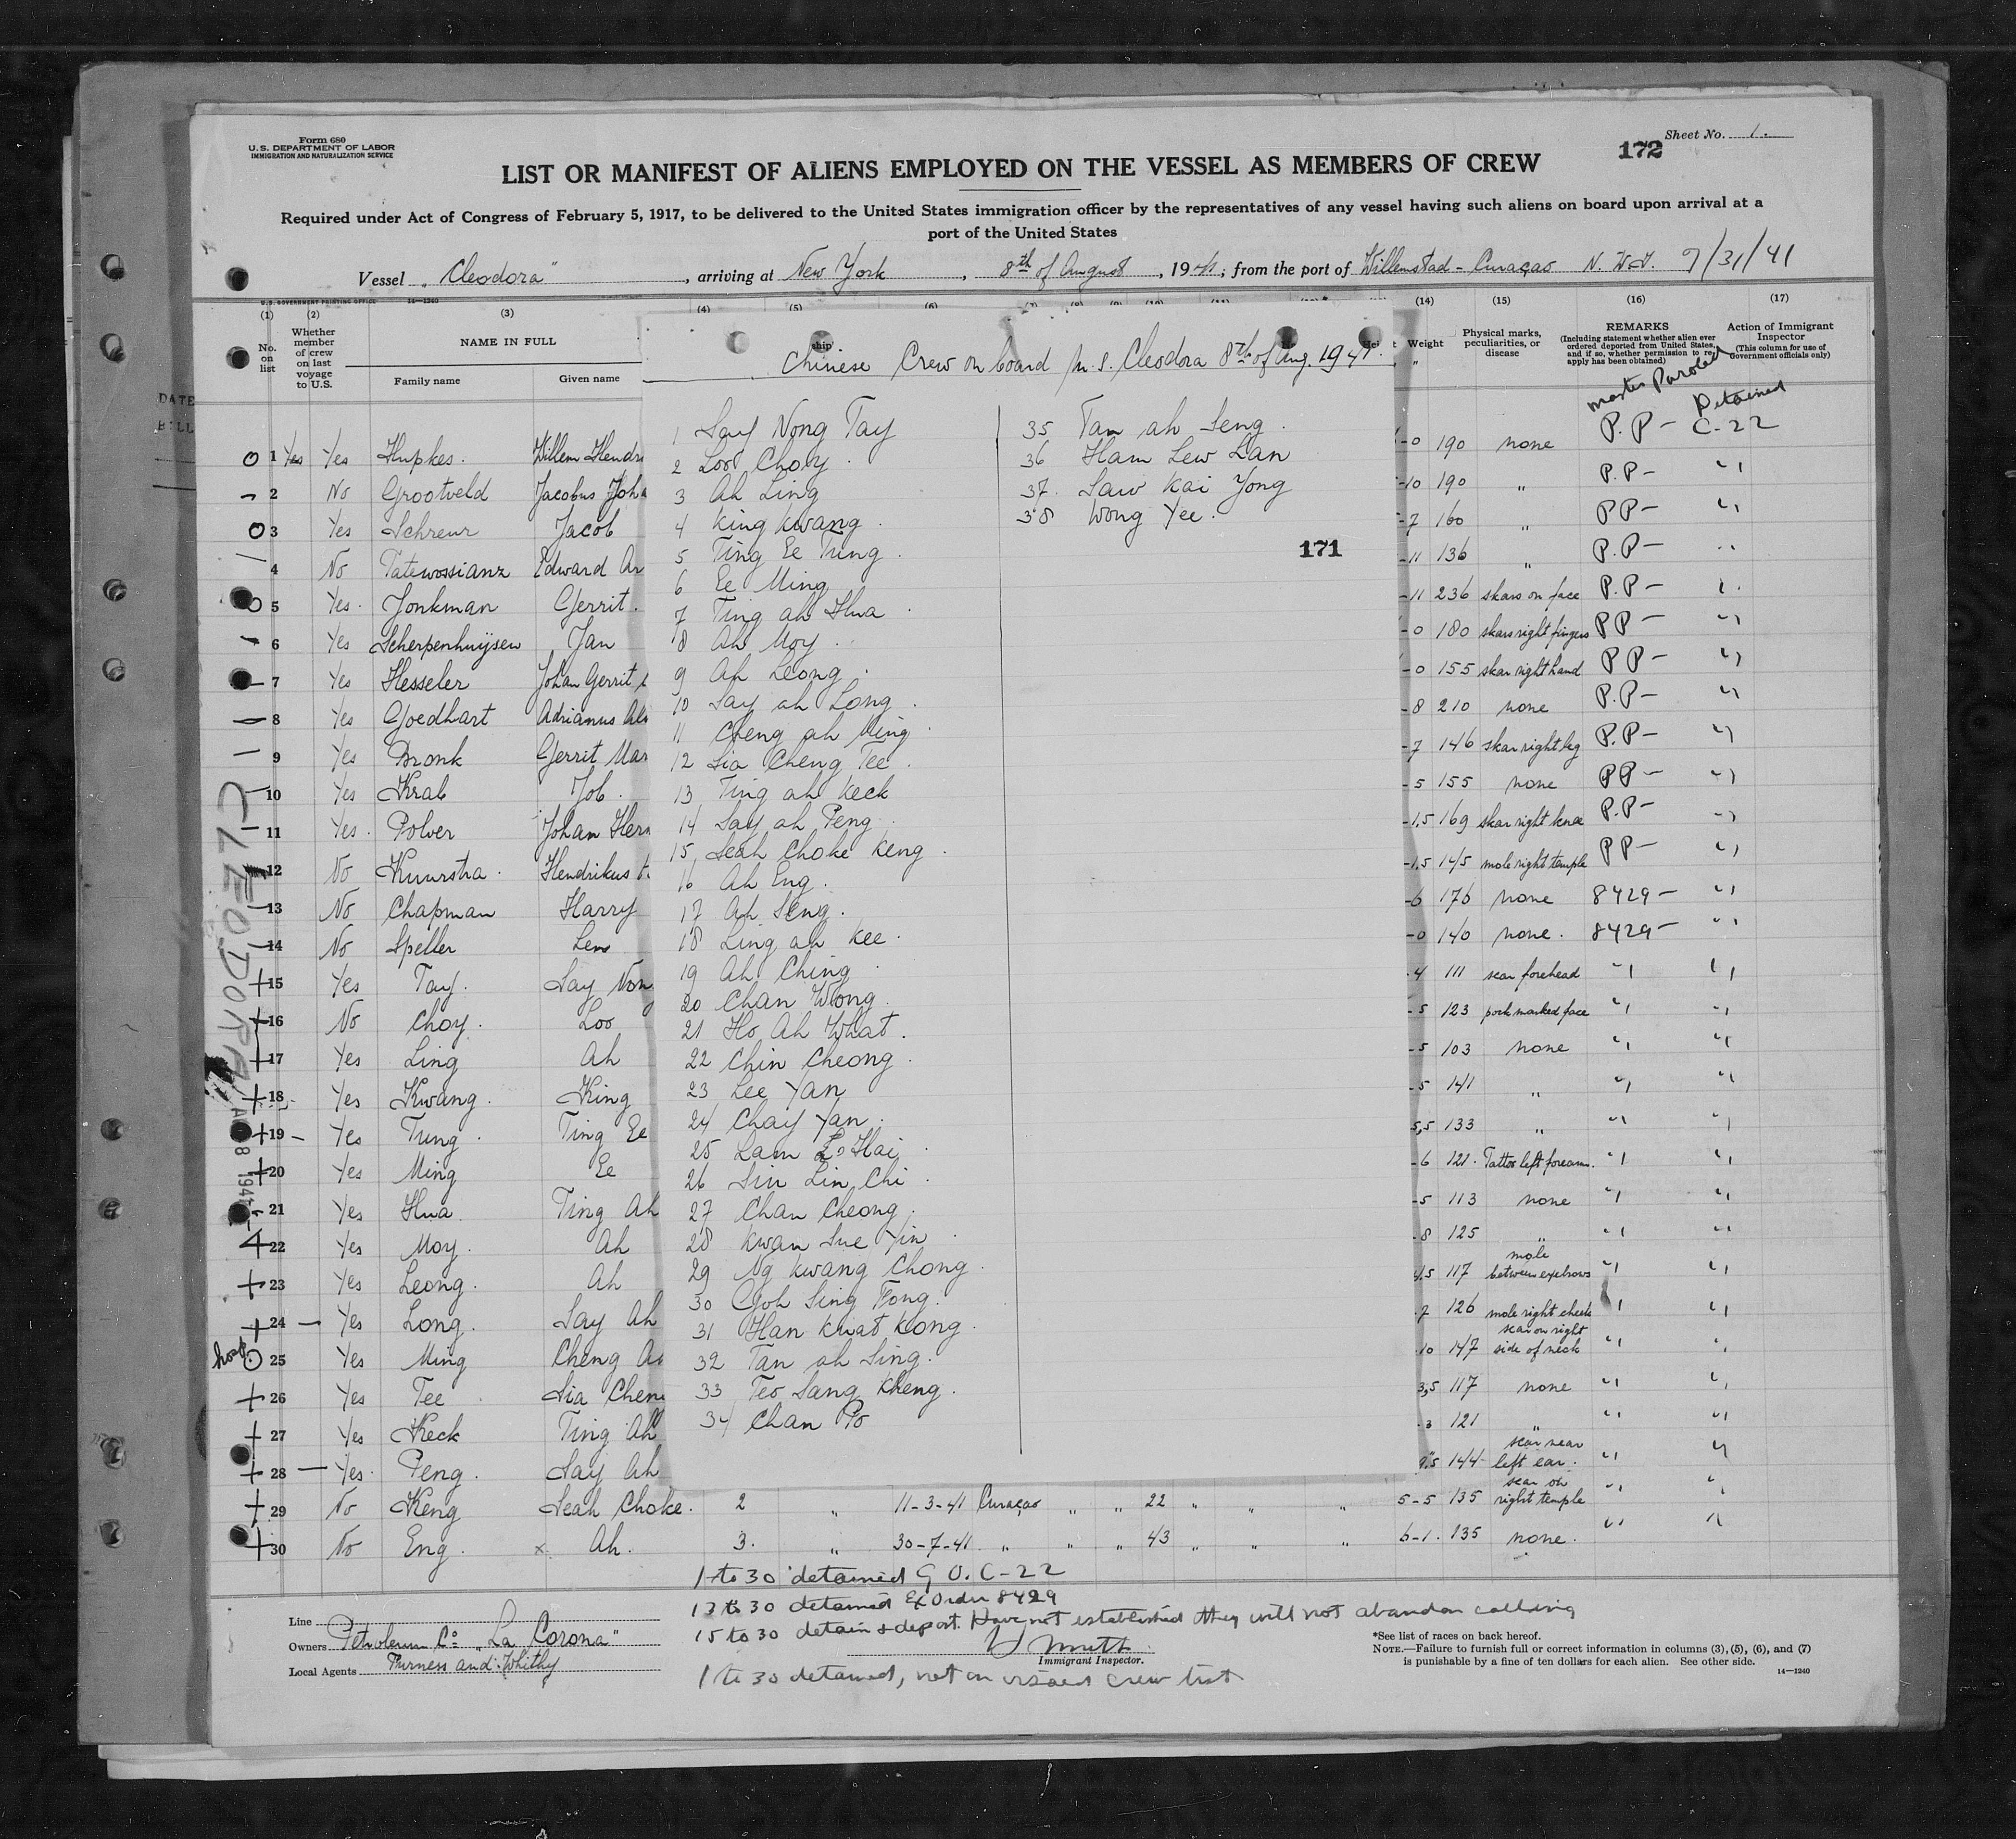 Form 680
U.S. DEPARTMENT OF LABOR
IMMIGRATION AND NATURALIZATION SERVICE
Sheet No. 1.
172
LIST OR MANIFEST OF ALIENS EMPLOYED ON THE VESSEL AS MEMBERS OF CREW
Required under Act of Congress of February 5, 1917, to be delivered to the United States immigration officer by the representatives of any vessel having such aliens on board upon arrival at a
port of the United States
Vessel „Cleodora", arriving at New York, 8th of August, 1941; from the port of Willemstad - Curaçao N.W.I. 7/31/41
U.S. GOVERNMENT PRINTING OFFICE 14—1240
(1) (2) (3) (4) (5) (6) (14) (15) (16) (17)
No. on list
Whether member of crew on last voyage to U.S.
NAME IN FULL
Family name Given name
Weight
Physical marks, peculiarities, or disease
REMARKS
(Including statement whether alien ever ordered deported from United States, and if so, whether permission to reapply has been obtained)
Action of Immigrant Inspector
(This column for use of Government officials only)
Master Paroled
Detained
DATE
BILL
1 Yes Yes Hupkes. Willem Hendr -0 190 none P.P- C-22
2 No Grootveld Jacobus Joha -10 190 „ P.P- "
3 Yes Schreur Jacob -7 160 „ PP- "
4 No Tatewossianz Edward Ar -11 136 „ P.P- "
5 Yes. Jonkman Gerrit. -11 236 skars on face P.P- "
6 Yes Scherpenhuijsen Jan -0 180 skars right fingers PP- "
7 Yes Hesseler Johan Gerrit -0 155 skar right hand PP- "
8 Yes Goedhart Adrianus -8 210 none P.P- "
9 Yes Bronk Gerrit Mar -7 146 skar right leg P.P- "
10 Yes Krab Job. -5 155 none PP- "
11 Yes. Polver Johan Herm -1.5 169 skar right knee P.P- "
12 No Kuurstra. Hendrikus -1.5 145 mole right temple PP- "
13 No Chapman Harry -6 176 none 8429- "
14 No Speller Len -0 140 none. 8429- "
15 Yes Tay. Say Non -4 111 scar forehead " "
16 No Choy. Loo -5 123 pock marked face " "
17 Yes Ling Ah -5 103 none " "
18 Yes Kwang. King -5 141 „ " "
19 - Yes Tung. Ting Ee 5,5 133 „ " "
20 Yes Ming Ee -6 121. Tattoo left forearm. " "
21 Yes Hua Ting Ah -5 113 none " "
22 Yes Moy. Ah -8 125 „ " "
23 Yes Leong. Ah 4.5 117 mole between eyebrows " "
24 - Yes Long. Say Ah 7 126 mole right cheek " "
hosp. 25 Yes Ming Cheng Ah 10 147 scar on right side of neck " "
26 Yes Tee Sia Chen 3,5 117 none " "
27 Yes Keck Ting Ah -3 121 „ " "
28 - Yes. Peng. Say Ah 144 scar near left ear. " "
29 No Keng Seah Choke. 2 „ 11-3-41 Curaçao „ „ 22 „ „ „ 5-5 135 scar on right temple " "
30 No Eng. x. Ah. 3. „ 30-7-41 „ „ „ 43 „ „ „ 6-1. 135 none. " "
CLEODORA
AUG 8 1941
ship
Chinese Crew on board m.s. Cleodora 8th of Aug. 1941.
1 Say Nong Tay
2 Loo Choy.
3 Ah Ling
4 King Kwang.
5 Ting Ee Tung.
6 Ee Ming
7 Ting ah Hua.
8 Ah Moy.
9 Ah Leong.
10 Say ah Long.
11 Cheng ah Ming
12 Sia Cheng Tee.
13 Ting ah Keck
14 Say ah Peng
15 Seah Choke Keng.
16 Ah Eng.
17 Ah Seng.
18 Ling ah Kee.
19 Ah Ching
20 Chan Wong.
21 Ho Ah What.
22 Chin Cheong.
23 Lee Yan
24 Chay Yan.
25 Lam Lo Hai.
26 Sin Lin Chi.
27 Chan Cheong.
28 Kwan Sue Yin.
29 Ng Kwang Chong.
30 Goh Sing Fong.
31 Han Kwat Kong.
32 Tan ah Sing.
33 Teo Sang Kheng.
34 Chan Po
35 Tan ah Seng.
36 Ham Lew Lan
37. Saw Kai Yong
38 Wong Yee.
171
1 to 30 detained G.O. C-22
13 to 30 detained Ex Order 8429
15 to 30 detain & deport. Have not established they will not abandon calling
Immigrant Inspector.
1 to 30 detained, not on visaed crew list
Line
Owners Petroleum Co: „La Corona"
Local Agents Furness and Whithy
*See list of races on back hereof.
NOTE.—Failure to furnish full or correct information in columns (3), (5), (6), and (7)
is punishable by a fine of ten dollars for each alien. See other side.
14—1240